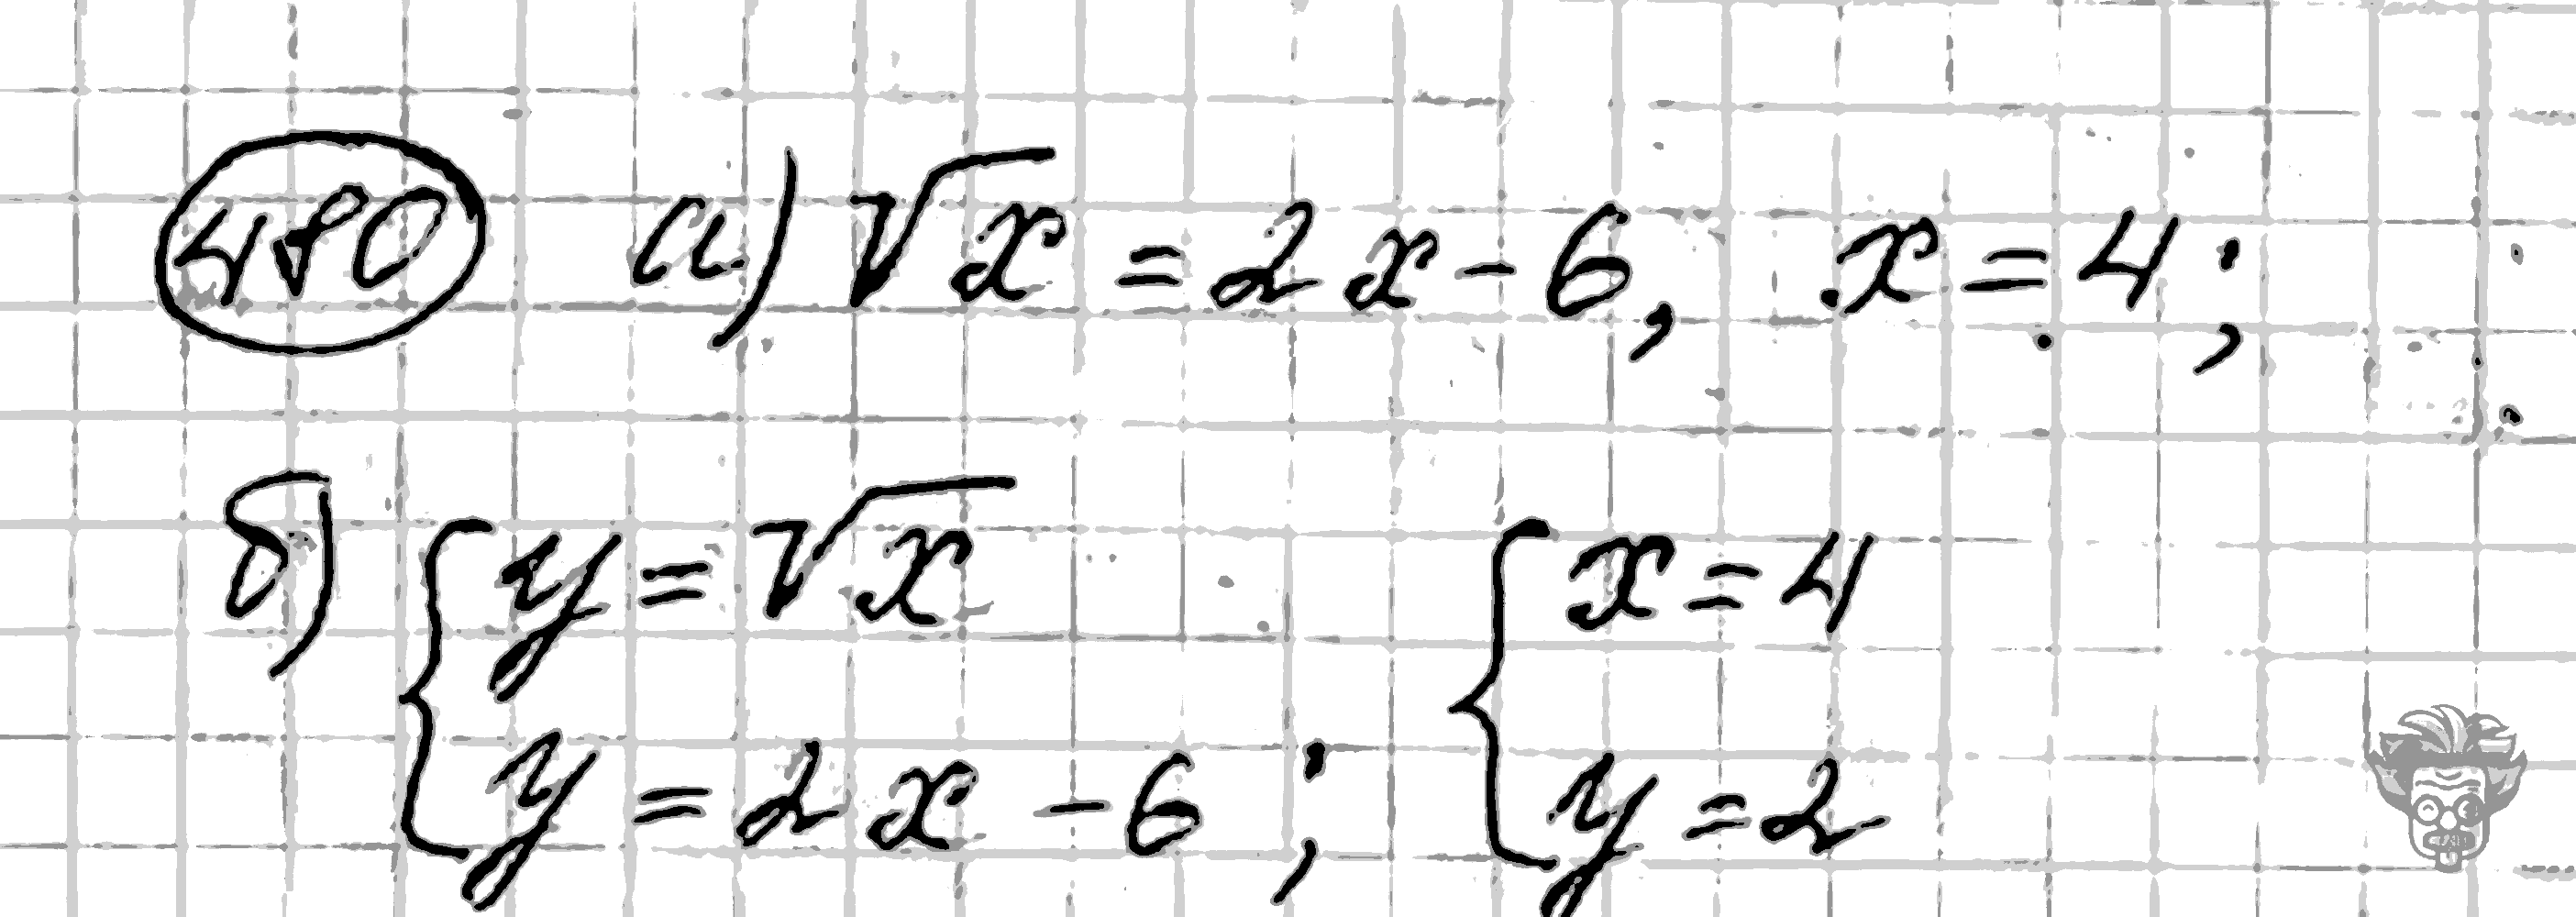 480 а) √x = 2x - 6, x = 4;
б) { y = √x { x = 4
y = 2x - 6; y = 2